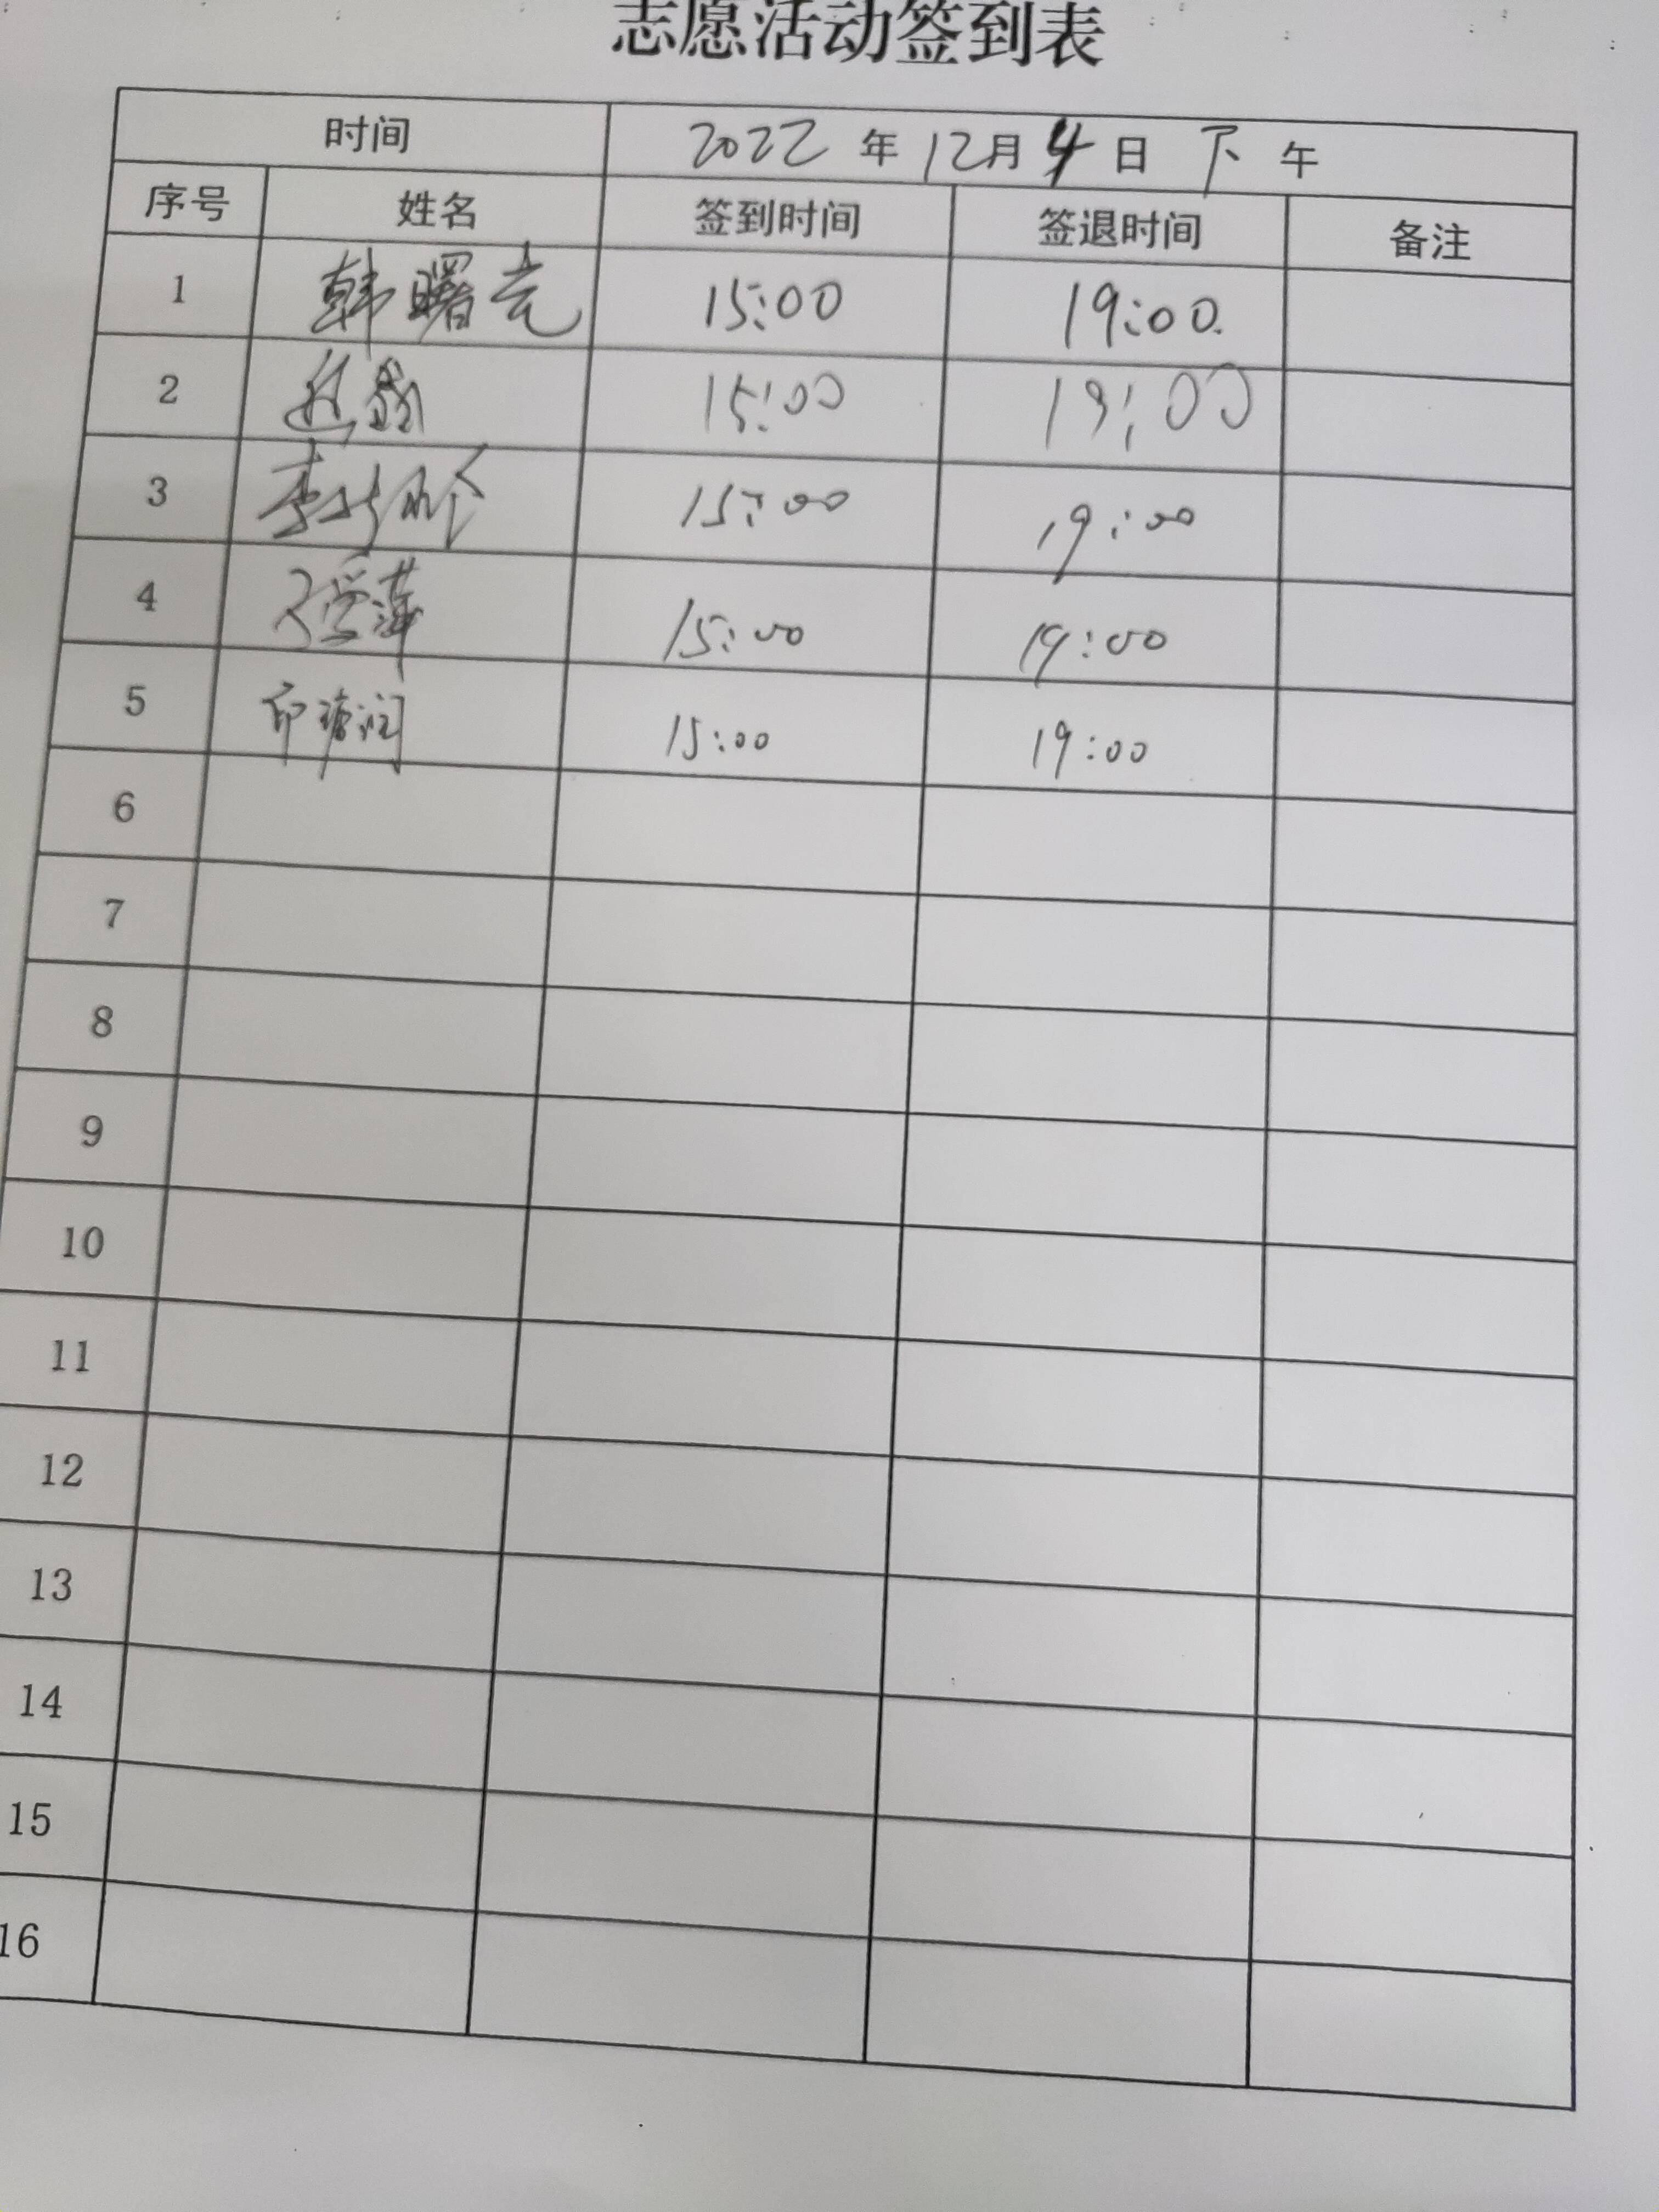 志愿活动签到表
时间 2022年12月4日下午
序号 姓名 签到时间 签退时间 备注
1 韩曙光 15:00 19:00
2 15:00 19:00
3 李 15:00 19:00
4 15:00 19:00
5 印 润 15:00 19:00
6
7
8
9
10
11
12
13
14
15
16